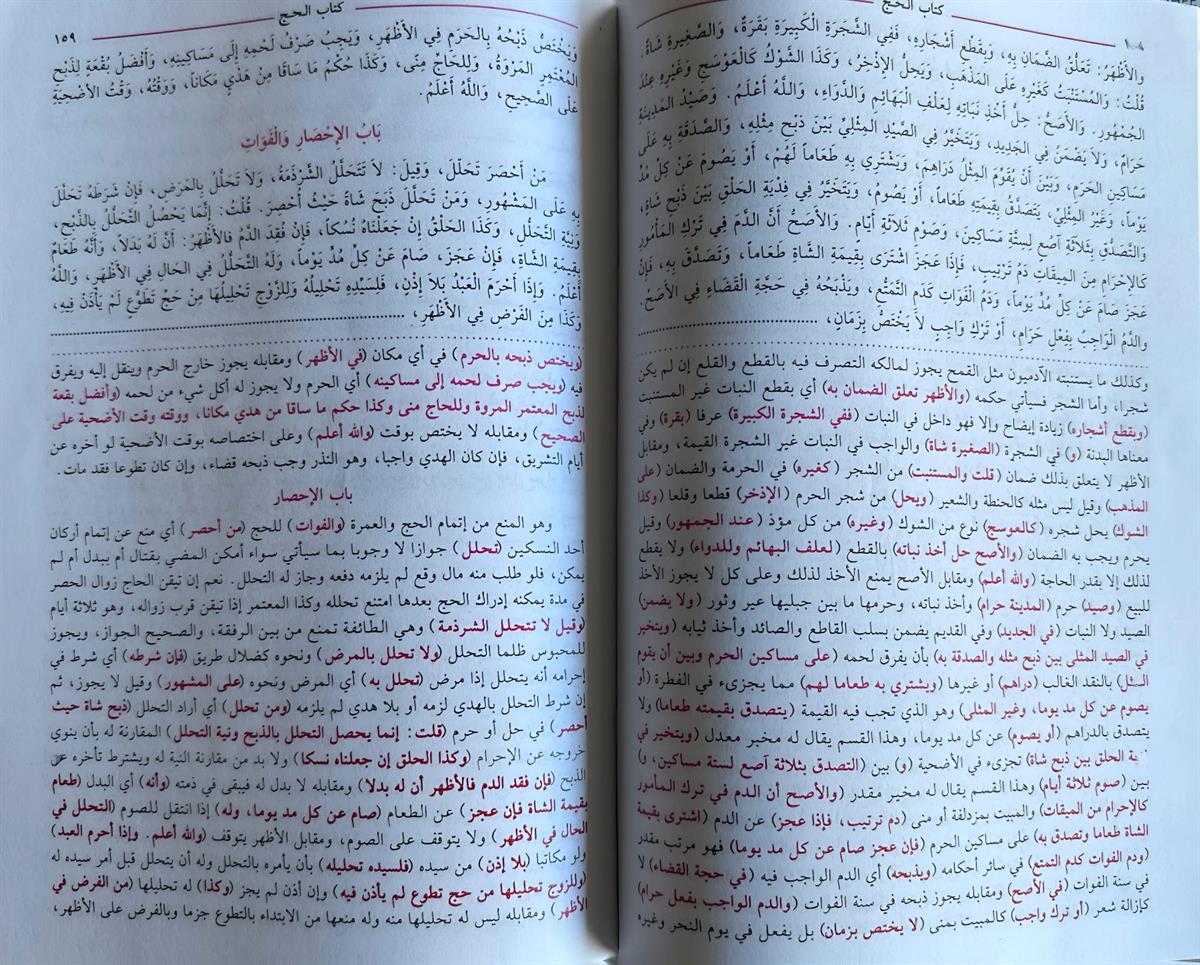 كتاب الحج
والأَظْهَرُ: تَعَلُّقُ الضَّمَانِ بِهِ، وَبِقَطْعِ أَشْجَارِهِ، فَفِي الشَّجَرَةِ الْكَبِيرَةِ بَقَرَةٌ، وَالصَّغِيرَةِ شَاةٌ.
قُلْتُ: وَالْمُسْتَنْبَتُ كَغَيْرِهِ عَلَى المَذْهَبِ، وَيَحِلُّ الإِذْخِرُ، وَكَذَا الشَّوْكُ كَالْعَوْسَجِ وَغَيْرِهِ عِنْدَ
الْجُمْهُورِ. وَالأَصَحُّ: حِلُّ أَخْذِ نَبَاتِهِ لِعَلْفِ الْبَهَائِمِ وَالدَّوَاءِ، وَاللَّهُ أَعْلَمُ. وَصَيْدُ المَدِينَةِ
حَرَامٌ، وَلاَ يَضْمَنُ فِي الجَدِيدِ، وَيَتَخَيَّرُ فِي الصَّيْدِ المِثْلِيِّ بَيْنَ ذَبْحِ مِثْلِهِ، وَالصَّدَقَةِ بِهِ عَلَى
مَسَاكِينِ الحَرَمِ، وَبَيْنَ أَنْ يُقَوَّمَ المِثْلُ دَرَاهِمَ، وَيَشْتَرِي بِهِ طَعَاماً لَهُمْ، أَوْ يَصُومَ عَنْ كُلِّ مُدٍّ
يَوْماً، وَغَيْرُ المِثْلِيِّ، يَتَصَدَّقُ بِقِيمَتِهِ طَعَاماً، أَوْ يَصُومُ، وَيَتَخَيَّرُ فِي فِدْيَةِ الحَلْقِ بَيْنَ ذَبْحِ شَاةٍ،
وَالتَّصَدُّقِ بِثَلاَثَةِ آصُعٍ لِسِتَّةِ مَسَاكِينَ، وَصَوْمِ ثَلاَثَةِ أَيَّامٍ. وَالأَصَحُّ أَنَّ الدَّمَ فِي تَرْكِ المَأْمُورِ
كَالإِحْرَامِ مِنَ المِيقَاتِ دَمُ تَرْتِيبٍ، فَإِذَا عَجَزَ اشْتَرَى بِقِيمَةِ الشَّاةِ طَعَاماً، وَتَصَدَّقَ بِهِ، فَإِنْ
عَجَزَ صَامَ عَنْ كُلِّ مُدٍّ يَوْماً، وَدَمُ الْفَوَاتِ كَدَمِ التَّمَتُّعِ، وَيَذْبَحُهُ فِي حَجَّةِ الْقَضَاءِ فِي الأَصَحِّ.
والدَّمُ الْوَاجِبُ بِفِعْلٍ حَرَامٍ، أَوْ تَرْكِ وَاجِبٍ لاَ يَخْتَصُّ بِزَمَانٍ،
وكذلك ما يستنبته الآدميون مثل القمح يجوز لمالكه التصرف فيه بالقطع والقلع إن لم يكن
شجرا، وأما الشجر فسيأتي حكمه (والأظهر تعلق الضمان به) أي بقطع النبات غير المستنبت
(وبقطع أشجاره) زيادة إيضاح وإلا فهو داخل في النبات (ففي الشجرة الكبيرة) عرفا (بقرة) وفي
معناها البدنة (و) في الشجرة (الصغيرة شاة) والواجب في النبات غير الشجرة القيمة، ومقابل
الأظهر لا يتعلق بذلك ضمان (قلت والمستنبت) من الشجر (كغيره) في الحرمة والضمان (على
المذهب) وقيل ليس مثله كالحنطة والشعير (ويحل) من شجر الحرم (الإذخر) قطعا وقلعا (وكذا
الشوك) يحل شجره (كالعوسج) نوع من الشوك (وغيره) من كل مؤذ (عند الجمهور) وقيل
يحرم ويجب به الضمان (والأصح حل أخذ نباته) بالقطع (لعلف البهائم وللدواء) ولا يقطع
لذلك إلا بقدر الحاجة (والله أعلم) ومقابل الأصح يمنع الأخذ لذلك وعلى كل لا يجوز الأخذ
للبيع (وصيد) حرم (المدينة حرام) وأخذ نباته، وحرمها ما بين جبليها عير وثور (ولا يضمن)
الصيد ولا النبات (في الجديد) وفي القديم يضمن بسلب القاطع والصائد وأخذ ثيابه (ويتخير
في الصيد المثلى بين ذبح مثله والصدقة به) بأن يفرق لحمه (على مساكين الحرم وبين أن يقوم
المثل) بالنقد الغالب (دراهم) أو غيرها (ويشتري به طعاما لهم) مما يجزىء في الفطرة (أو
يصوم عن كل مد يوما، وغير المثلى) وهو الذي تجب فيه القيمة (يتصدق بقيمته طعاما) ولا
يتصدق بالدراهم (أو يصوم) عن كل مد يوما، وهذا القسم يقال له مخير معدل (ويتخير في
الحلق بين ذبح شاة) تجزىء في الأضحية (و) بين (التصدق بثلاثة آصع لستة مساكين، و)
بين (صوم ثلاثة أيام) وهذا القسم يقال له مخير مقدر (والأصح أن الدم في ترك المأمور
كالإحرام من الميقات) والمبيت بمزدلفة أو منى (دم ترتيب، فإذا عجز) عن الدم (اشترى بقيمة
الشاة طعاما وتصدق به) على مساكين الحرم (فإن عجز صام عن كل مد يوما) فهو مرتب مقدر
(ودم الفوات كدم التمتع) في سائر أحكامه (ويذبحه) أي الدم الواجب فيه (في حجة القضاء) لا
في سنة الفوات (في الأصح) ومقابله يجوز ذبحه في سنة الفوات (والدم الواجب بفعل حرام)
كإزالة شعر (أو ترك واجب) كالمبيت بمنى (لا يختص بزمان) بل يفعل في يوم النحر وغيره
كتاب الحج
١٥٩
وَيَخْتَصُّ ذَبْحُهُ بِالحَرَمِ فِي الأَظْهَرِ، وَيَجِبُ صَرْفُ لَحْمِهِ إِلَى مَسَاكِينِهِ، وَأَفْضَلُ بُقْعَةٍ لِذَبْحِ
المُعْتَمِرِ المَرْوَةُ، وَلِلحَاجِّ مِنًى، وَكَذَا حُكْمُ مَا سَاقَا مِنْ هَدْيٍ مَكَاناً، وَوَقْتُهُ، وَقْتُ الأُضْحِيَّةِ
عَلَى الصَّحِيحِ، وَاللَّهُ أَعْلَمُ.
بَابُ الإِحْصَارِ وَالْفَوَاتِ
مَنْ أُحْصِرَ تَحَلَّلَ، وَقِيلَ: لاَ تَتَحَلَّلُ الشِّرْذِمَةُ، وَلاَ تَحَلُّلَ بِالمَرَضِ، فَإِنْ شَرَطَهُ تَحَلَّلَ
بِهِ عَلَى المَشْهُورِ، وَمَنْ تَحَلَّلَ ذَبَحَ شَاةً حَيْثُ أُحْصِرَ. قُلْتُ: إِنَّمَا يَحْصُلُ التَّحَلُّلُ بِالذَّبْحِ،
وَنِيَّةِ التَّحَلُّلِ، وَكَذَا الحَلْقُ إِنْ جَعَلْنَاهُ نُسُكاً، فَإِنْ فُقِدَ الدَّمُ فالأَظْهَرُ: أَنَّ لَهُ بَدَلاً، وَأَنَّهُ طَعَامٌ
بِقِيمَةِ الشَّاةِ، فَإِنْ عَجَزَ، صَامَ عَنْ كُلِّ مُدٍّ يَوْماً، وَلَهُ التَّحَلُّلُ فِي الحَالِ فِي الأَظْهَرِ، وَاللَّهُ
أَعْلَمُ. وَإِذَا أَحْرَمَ الْعَبْدُ بِلاَ إِذْنٍ، فَلِسَيِّدِهِ تَحْلِيلُهُ وَلِلزَّوْجِ تَحْلِيلُهَا مِنْ حَجِّ تَطَوُّعٍ لَمْ يَأْذَنْ فِيهِ،
وَكَذَا مِنَ الْفَرْضِ فِي الأَظْهَرِ،
(ويختص ذبحه بالحرم) في أي مكان (في الأظهر) ومقابله يجوز خارج الحرم وينقل إليه ويفرق
فيه (ويجب صرف لحمه إلى مساكينه) أي الحرم ولا يجوز له أكل شيء من لحمه (وأفضل بقعة
لذبح المعتمر المروة وللحاج منى وكذا حكم ما ساقا من هدي مكانا، ووقته وقت الأضحية على
الصحيح) ومقابله لا يختص بوقت (والله أعلم) وعلى اختصاصه بوقت الأضحية لو أخره عن
أيام التشريق، فإن كان الهدي واجبا، وهو النذر وجب ذبحه قضاء، وإن كان تطوعا فقد مات.
باب الإحصار
وهو المنع من إتمام الحج والعمرة (والفوات) للحج (من أحصر) أي منع عن إتمام أركان
أحد النسكين (تحلل) جوازا لا وجوبا بما سيأتي سواء أمكن المضي بقتال أم ببدل أم لم
يمكن، فلو طلب منه مال وقع لم يلزمه دفعه وجاز له التحلل. نعم إن تيقن الحاج زوال الحصر
في مدة يمكنه إدراك الحج بعدها امتنع تحلله وكذا المعتمر إذا تيقن قرب زواله، وهو ثلاثة أيام
(وقيل لا تتحلل الشرذمة) وهي الطائفة تمنع من بين الرفقة، والصحيح الجواز، ويجوز
للمحبوس ظلما التحلل (ولا تحلل بالمرض) ونحوه كضلال طريق (فإن شرطه) أي شرط في
إحرامه أنه يتحلل إذا مرض (تحلل به) أي المرض ونحوه (على المشهور) وقيل لا يجوز، ثم
إن شرط التحلل بالهدي لزمه أو بلا هدي لم يلزمه (ومن تحلل) أي أراد التحلل (ذبح شاة حيث
أحصر) في حل أو حرم (قلت: إنما يحصل التحلل بالذبح ونية التحلل) المقارنة له بأن ينوي
خروجه عن الإحرام (وكذا الحلق إن جعلناه نسكا) ولا بد من مقارنة النية له ويشترط تأخره عن
الذبح (فإن فقد الدم فالأظهر أن له بدلا) ومقابله لا بدل له فيبقى في ذمته (وأنه) أي البدل (طعام
بقيمة الشاة فإن عجز) عن الطعام (صام عن كل مد يوما، وله) إذا انتقل للصوم (التحلل في
الحال في الأظهر) ولا يتوقف على الصوم، ومقابل الأظهر يتوقف (والله أعلم. وإذا أحرم العبد)
ولو مكاتبا (بلا إذن) من سيده (فلسيده تحليله) بأن يأمره بالتحلل وله أن يتحلل قبل أمر سيده له
(وللزوج تحليلها من حج تطوع لم يأذن فيه) وإن أذن لم يجز (وكذا) له تحليلها (من الفرض في
الأظهر) ومقابله ليس له تحليلها منه وله منعها من الابتداء بالتطوع جزما وبالفرض على الأظهر،